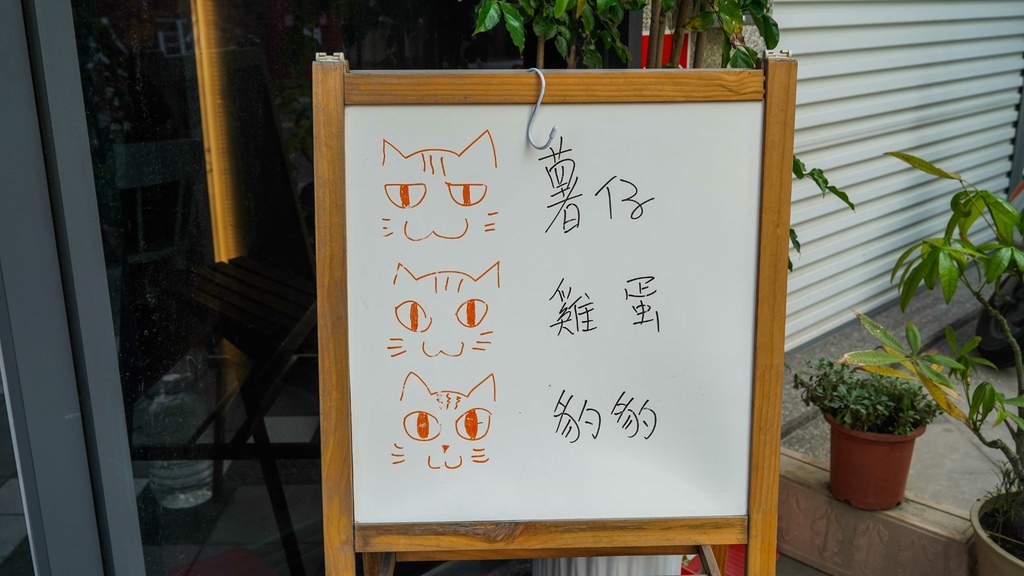 薯仔
雞蛋
豹豹